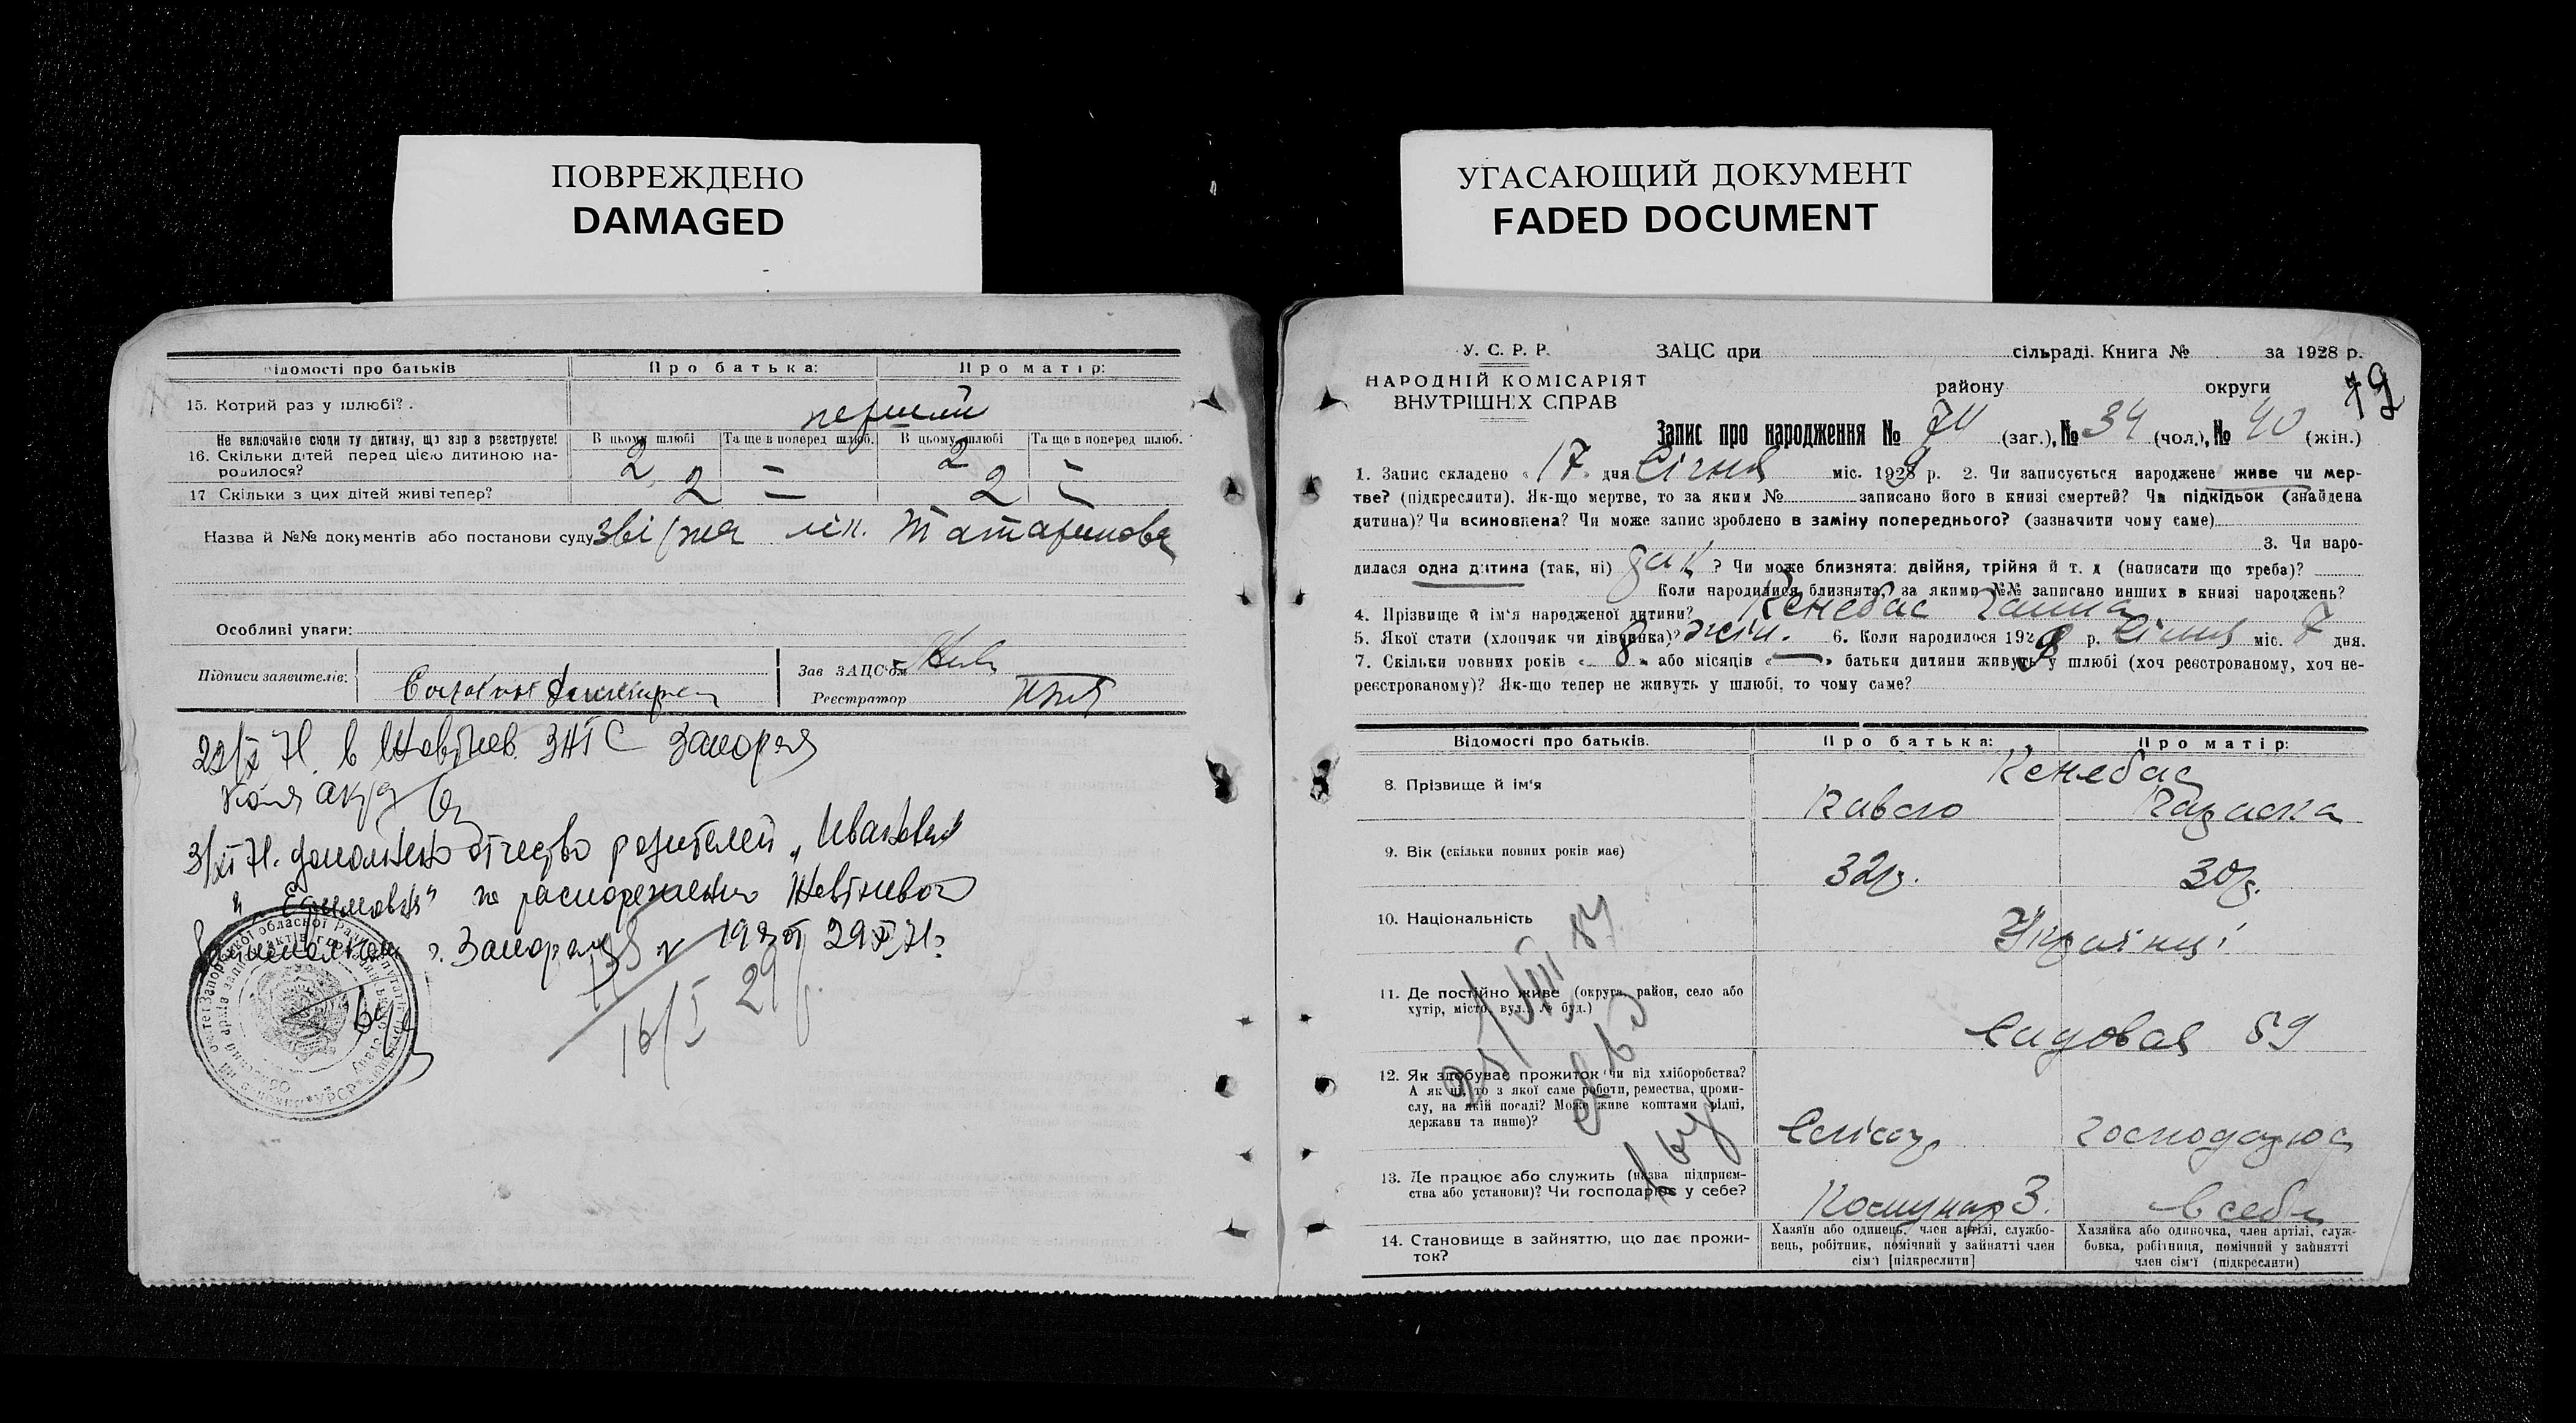 ПОВРЕЖДЕНО
DAMAGED
Відомості про батьків
Про батька:
Про матір:
15. Котрий раз у шлюбі?
перший
Не включайте сюди ту дитину, що зар з реєструєте!
В цьому шлюбі
Та ще в поперед шлюб.
В цьому шлюбі
Та ще в поперед шлюб.
16. Скільки дітей перед цією дитиною на-
родилося?
2 – 2 –
17 Скільки з цих дітей живі тепер?
2 – 2 –
Назва й №№ документів або постанови суду
лік.
Особливі уваги:
Підписи заявителів:
Зав ЗАЦС'ом
Реєстратор
ЗАГС
3/XI 71. дополнено отчество родителей „Иванович"
и „Ефимовна" по распоряжению
29 XI 71г.
16/I 29 г.
УГАСАЮЩИЙ ДОКУМЕНТ
FADED DOCUMENT
У. С. Р. Р.
ЗАЦС при сільраді. Книга № за 1928 р.
НАРОДНІЙ КОМІСАРІЯТ
ВНУТРІШНІХ СПРАВ
району округи
79
Запис про народження № 74 (заг.), № 34 (чол.), № 40 (жін.)
1. Запис складено « 17 дня Січня міс. 1929 р. 2. Чи записується народжене живе чи мер-
тве? (підкреслити). Як-що мертве, то за яким № записано його в книзі смертей? Чи підкідьок (знайдена
дитина)? Чи всиновлена? Чи може запис зроблено в заміну попереднього? (зазначити чому саме)
3. Чи наро-
дилася одна дитина (так, ні) так ? Чи може близнята: двійня, трійня й т. д (написати що треба)?
Коли народилися близнята, за якими №№ записано инших в книзі народжень?
4. Прізвище й ім'я народженої дитини? Кенебас Ганна
5. Якої стати (хлопчяк чи дівчинка)? жін. 6. Коли народилося 1929 р. Січня міс. 7 дня.
7. Скільки повних років « 8 » або місяців « — » батьки дитини живуть у шлюбі (хоч реєстрованому, хоч не-
реєстрованому)? Як-що тепер не живуть у шлюбі, то чому саме?
Відомості про батьків.
Про батька:
Про матір:
8. Прізвище й ім'я
Кенебас
Павло
9. Вік (скільки повних років має)
32р.
30р.
10. Національність
Українці
11. Де постійно живе (округа, район, село або
хутір, місто, вул., № буд.)
Садовая 89
12. Як здобуває прожиток чи від хліборобства?
А як ні, то з якої саме роботи, ремества, проми-
слу, на якій посаді? Може живе коштами рідні,
держави та инше)?
Слісар
господарює
13. Де працює або служить (назва підприєм-
ства або установи)? Чи господарює у себе?
Комунар З.
в себе
14. Становище в зайняттю, що дає прожи-
ток?
Хазяїн або одинець, член артілі, службо-
вець, робітник, помічний у зайнятті член
сім'ї [підкреслити]
Хазяйка або одиночка, член артілі, служ-
бовка, робітниця, помічний у зайнятті
член сім'ї (підкреслити)